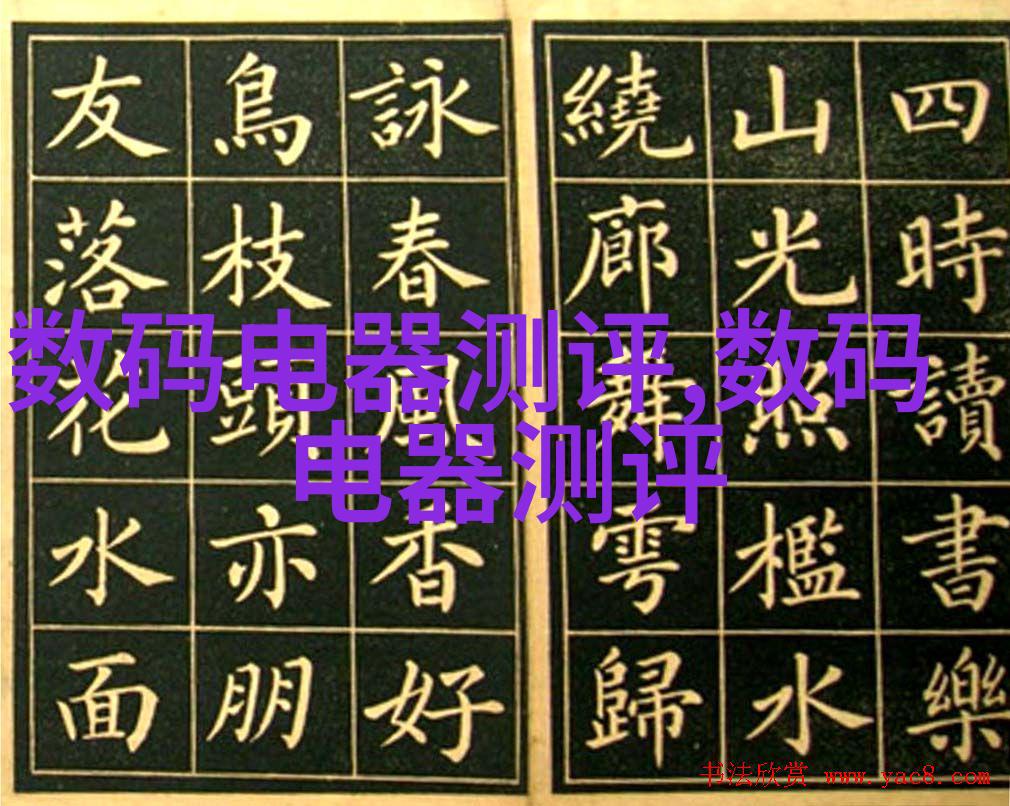 四時讀書樂
山光照檻水
繞廊舞雩歸
詠春風香好
鳥枝頭亦朋
友落花水面
数码电器测评,数码
电器测评
书法欣赏 www.yac8.com